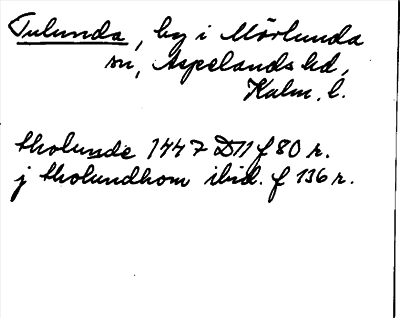 Tulunda, by i Mörlunda
sn, Aspelands hd,
Kalm. l.
tholunde 1447 D11 f 80 r.
j tholundhom ibid. f 136 r.